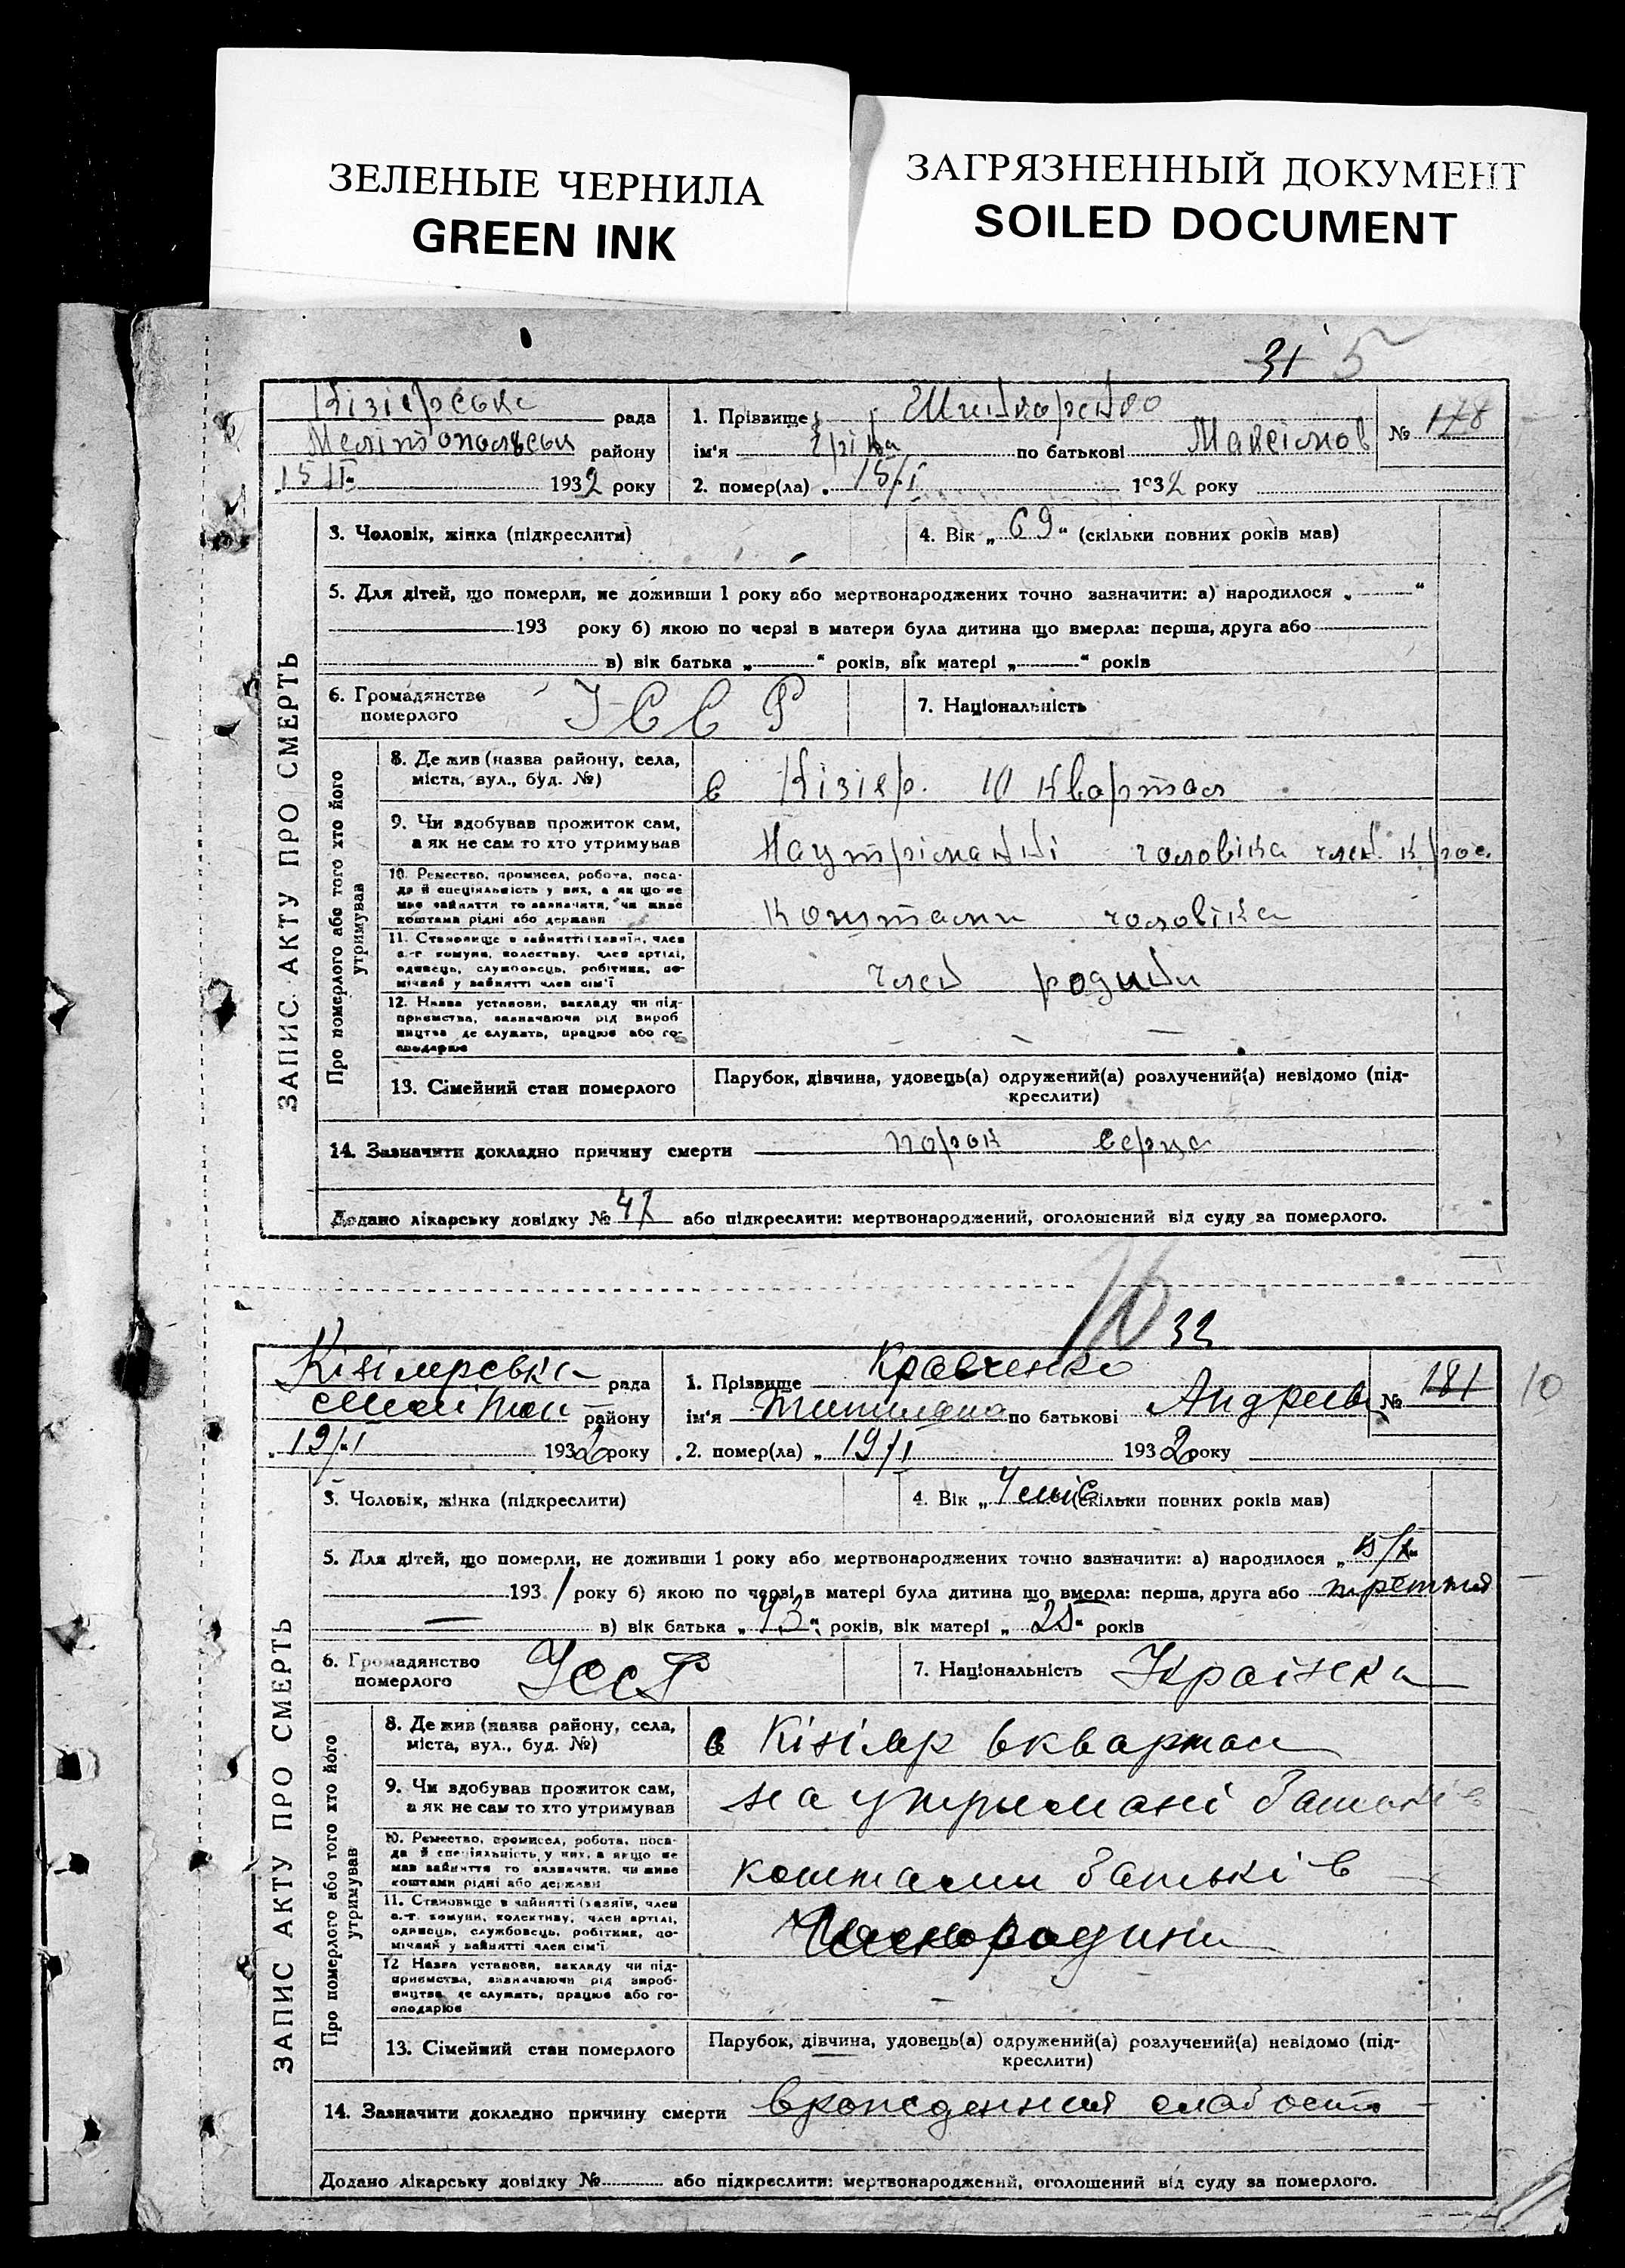 ЗЕЛЕНЫЕ ЧЕРНИЛА
GREEN INK
ЗАГРЯЗНЕННЫЙ ДОКУМЕНТ
SOILED DOCUMENT
31 5
ЗАПИС АКТУ ПРО СМЕРТЬ
рада
району
15 1932 року
1. Прізвище
№ 178
ім'я по батькові Максімов
2. помер(ла) „ 15/I 1932 року
3. Чоловік, жінка (підкреслити)
4. Вік „ 69 “ (скільки повних років мав)
5. Для дітей, що померли, не доживши 1 року або мертвонароджених точно зазначити: а) народилося „ “
193 року б) якою по черзі в матери була дитина що вмерла: перша, друга або
в) вік батька „ “ років, вік матері „ “ років
6. Громадянство померлого УССР
7. Національність
Про померлого або того хто його утримував
8. Де жив (назва району, села,
міста, вул., буд. №)
с Кізіяр. 10 квартал
9. Чи здобував прожиток сам,
а як не сам то хто утримував
На утріманні чоловіка член
10. Ремество, промисел, робота, поса-
да й спеціяльність у них, а як що не
має зайняття то зазначити, чи живе
коштами рідні або держави
Коштами чоловіка
11. Становище в зайнятті (хазяїн, член
с.-г комуни, колективу, член артілі,
одинець, службовець, робітник, по-
мічний у зайнятті член сім'ї
член родини
12. Назва установи, закладу чи під-
приємства, зазначаючи рід вироб
ництва де служить, працює або го-
сподарює
13. Сімейний стан померлого
Парубок, дівчина, удовець(а) одружений(а) розлучений(а) невідомо (під-
креслити)
14. Зазначити докладно причину смерти порок серца
Додано лікарську довідку № 47 або підкреслити: мертвонароджений, оголошений від суду за померлого.
10 32
ЗАПИС АКТУ ПРО СМЕРТЬ
Кізіярська рада
району
„ 19/I 1932 року
1. Прізвище Кравченко
№ 181 10
ім'я по батькові Андреев
2. помер(ла) „ 19/I 1932 року
3. Чоловік, жінка (підкреслити)
4. Вік „ (скільки повних років мав)
5. Для дітей, що померли, не доживши 1 року або мертвонароджених точно зазначити: а) народилося „
1931 року б) якою по черзі в матері була дитина що вмерла: перша, друга або третья
в) вік батька „ “ років, вік матері „ “ років
6. Громадянство померлого УССР
7. Національність Українка
Про померлого або того хто його утримував
8. Де жив (назва району, села,
міста, вул., буд. №)
с Кізіяр квартал
9. Чи здобував прожиток сам,
а як не сам то хто утримував
на утримані батьків
10. Ремество, промисел, робота, поса-
да й спеціяльність у них, а якщо не
має зайняття то зазначити, чи живе
коштами рідні або держави
коштами батьків
11. Становище в зайнятті (хазяїн, член
с.-г. комуни, колективу, член артілі,
одинець, службовець, робітник, по-
мічний у зайнятті член сім'ї
член родини
12 Назва установи, закладу чи під-
приємства, зазначаючи рід вироб-
ництва де служить, працює або го-
сподарює
13. Сімейний стан померлого
Парубок, дівчина, удовець(а) одружений(а) розлучений(а) невідомо (під-
креслити)
14. Зазначити докладно причину смерти врожденная слабость
Додано лікарську довідку № або підкреслити: мертвонароджений, оголошений від суду за померлого.